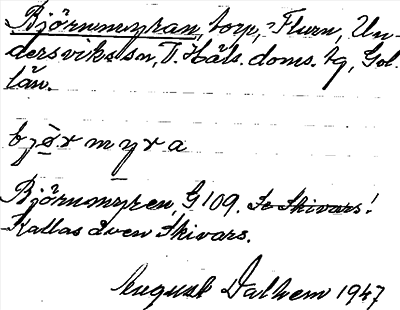 Björnmyran, torp, Flurn, Un-
dersviks sn, V. Häls. doms. tg, Gbl.
län.
bjørmyra
Björnmyren, G 109. Se Skivars!
Kallas även Skivars.
August Dalhem 1947